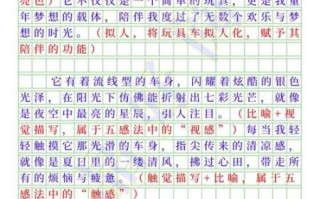 亮色）它不仅仅是一个简单的玩具，更是我童
年梦想的载体，陪伴我度过了无数个欢乐与梦
想的时光。（拟人，将玩具车拟人化，赋予其
陪伴的功能）
它有着流线型的车身，闪耀着炫酷的银色
光泽，在阳光下仿佛能折射出七彩光芒，就像
是夜空中最亮的星辰，引人注目。（比喻+视
觉描写，属于五感法中的“视感”）每当我轻
轻触摸它那光滑的车身，指尖传来的清凉感，
就像是夏日里的一缕清风，拂过心田，带走所
有的烦恼与疲惫。（触觉描写+比喻，属于五
感法中的“触感”）